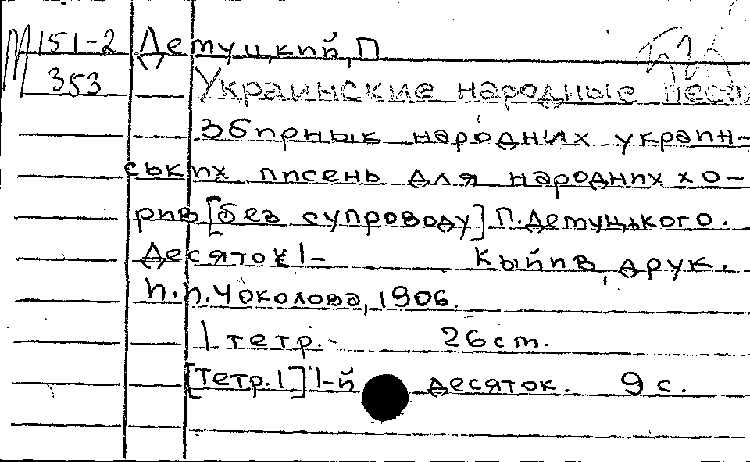 М 151-2 Демуцкий, П
353 Украинские народные песни
Збирнык народних украин-
ських писень для народних хо-
рив [без супроводу] П. Демуцького.
Десяток 1- Кыйив, друк.
И. И. Чоколова, 1906.
1 тетр. 26 ст.
[Тетр. 1] 1-й десяток. 9 с.